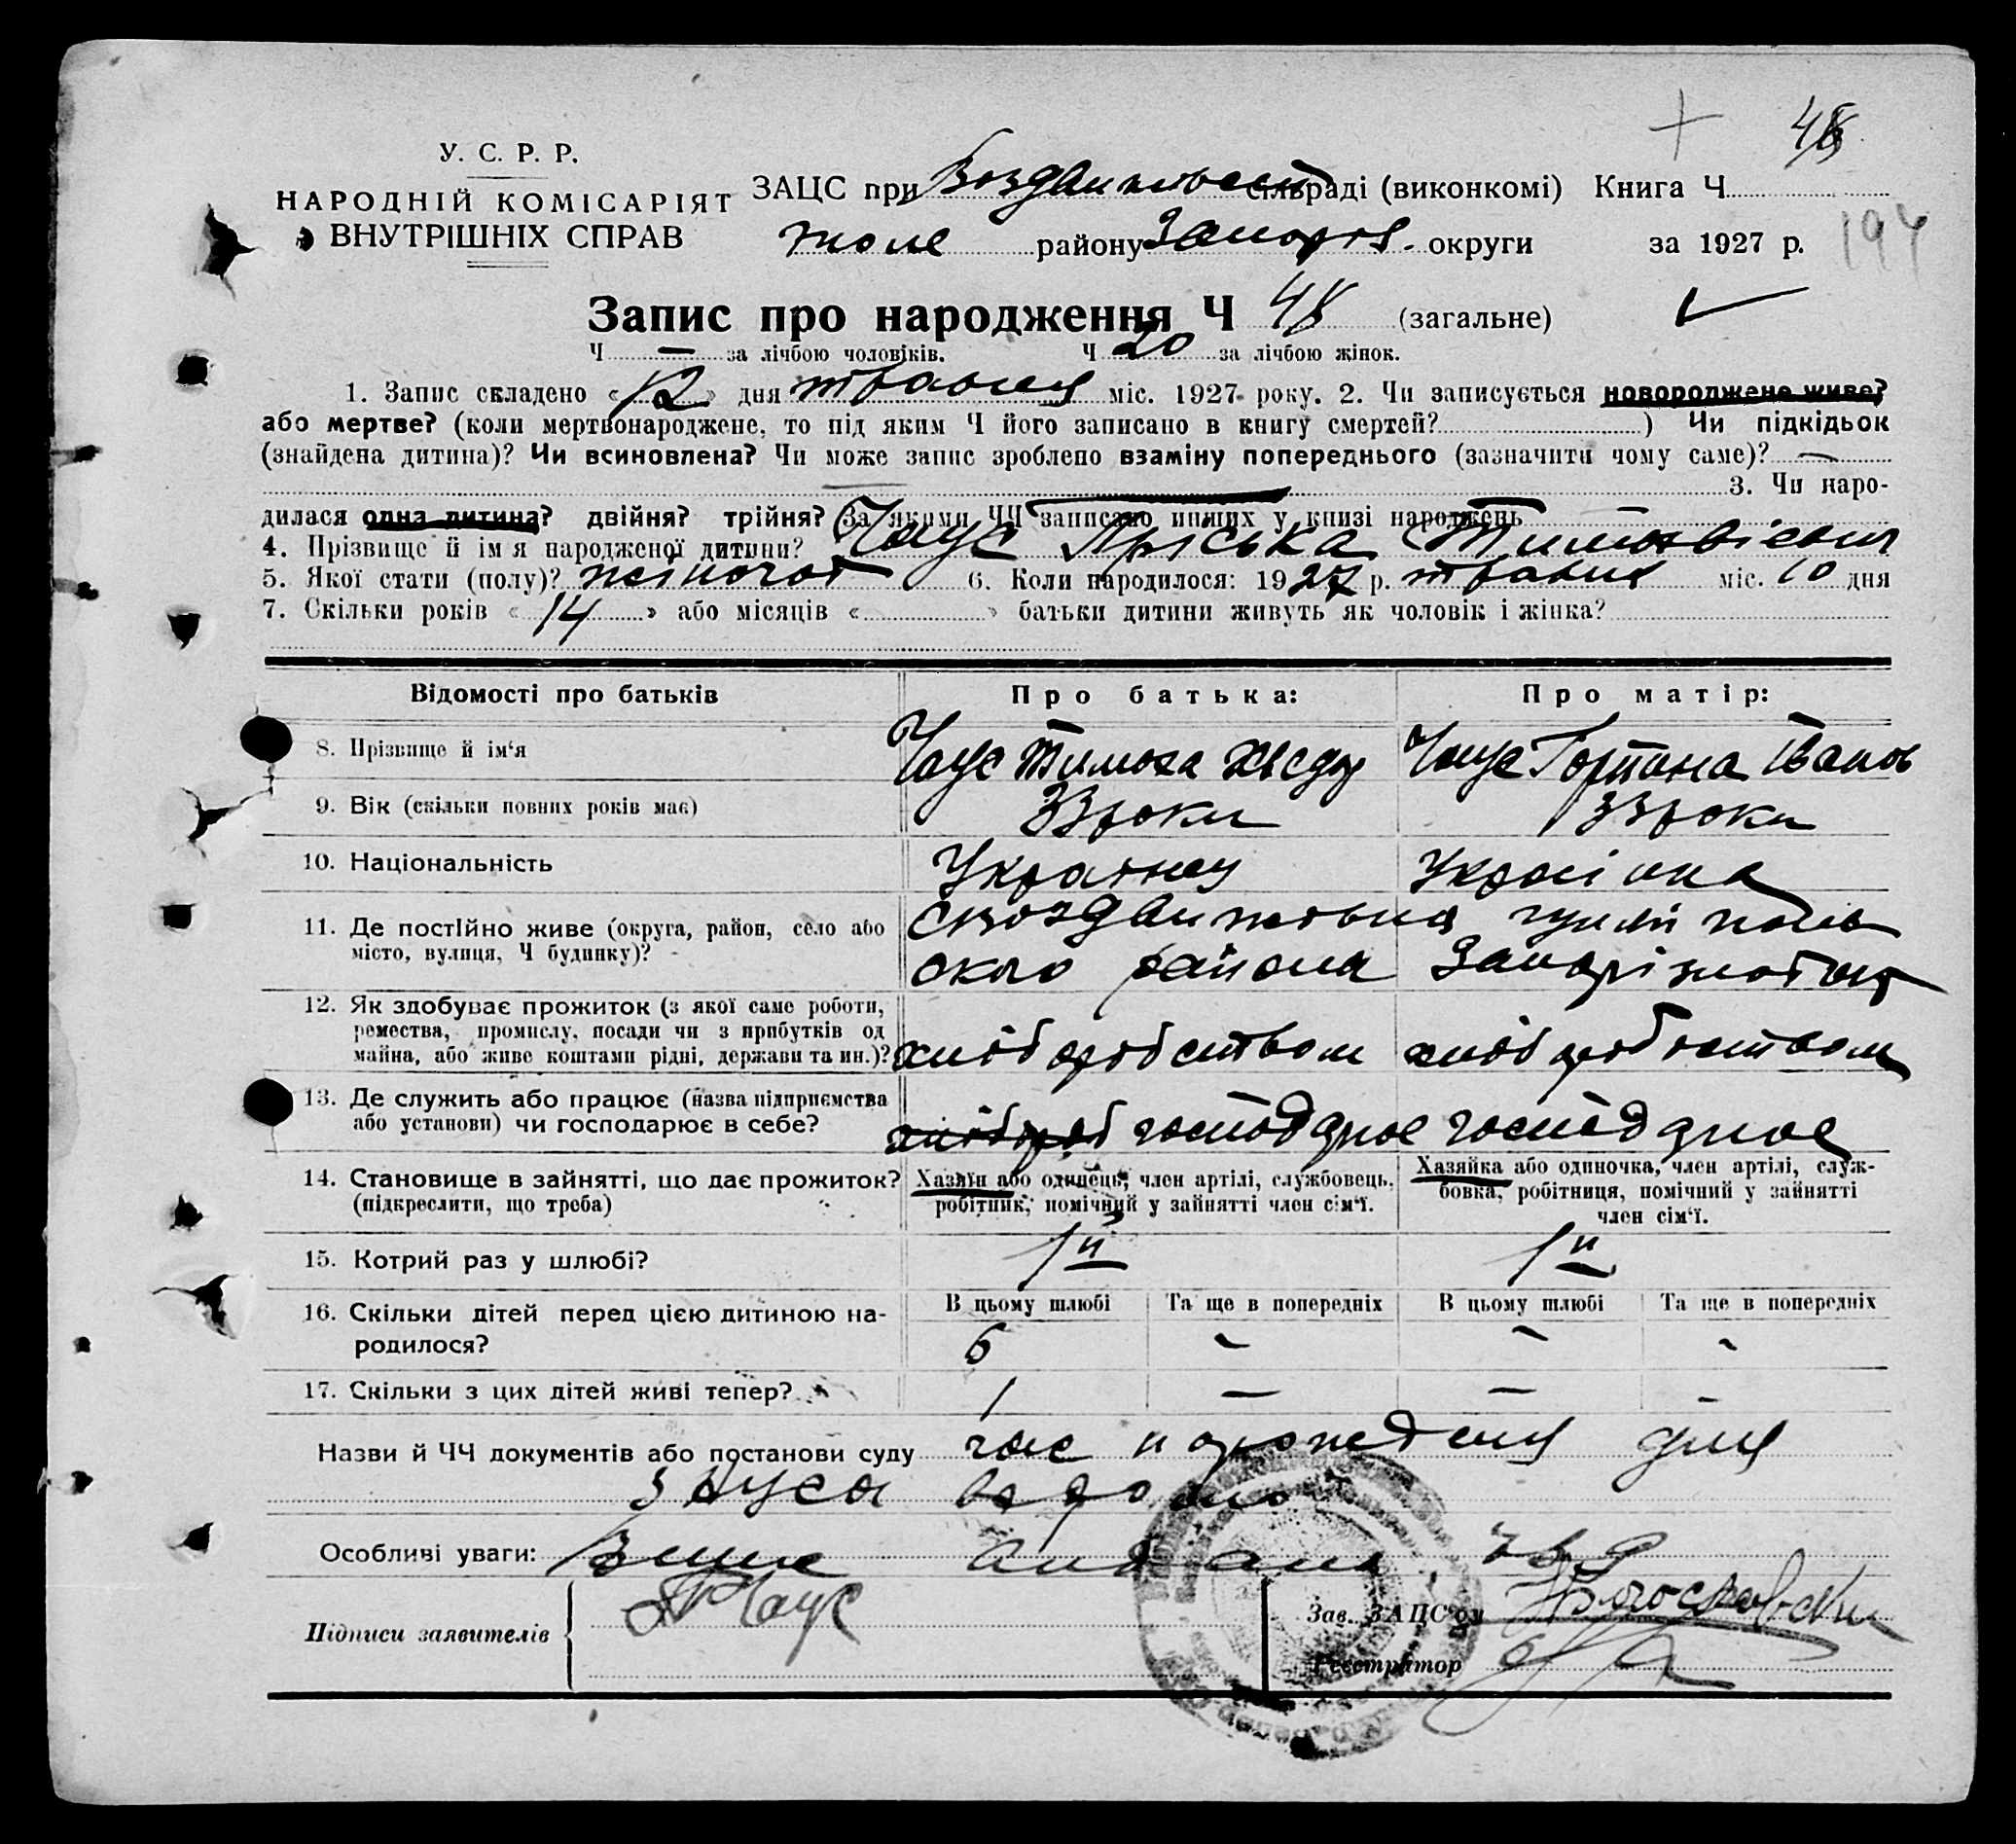 48
У. С. Р. Р.
НАРОДНІЙ КОМІСАРІЯТ
ВНУТРІШНІХ СПРАВ
ЗАЦС при сільраді (виконкомі) Книга Ч
району Запоріз. округи за 1927 р. 194
Запис про народження Ч 48 (загальне)
Ч — за лічбою чоловіків. Ч 20 за лічбою жінок.
1. Запис складено « 12 » дня травня міс. 1927 року. 2. Чи записується новороджене живе?
або мертве? (коли мертвонароджене, то під яким Ч його записано в книгу смертей? ) Чи підкідьок
(знайдена дитина)? Чи всиновлена? Чи може запис зроблено взаміну попереднього (зазначити чому саме)? —
3. Чи наро-
дилася одна дитина? двійня? трійня? За якими ЧЧ записано инших у книзі народжень
4. Прізвище й ім'я народженої дитини? Чаус Пріська
5. Якої стати (полу)? жіночої 6. Коли народилося: 1927 р. травня міс. 10 дня
7. Скільки років « 14 » або місяців « » батьки дитини живуть як чоловік і жінка?
Відомості про батьків Про батька: Про матір:
8. Прізвище й ім'я Чаус Тимоха Хведор Чаус Горпина Іванов
9. Вік (скільки повних років має) 33 роки 33 роки
10. Національність Українец Українка
11. Де постійно живе (округа, район, село або
місто, вулиця, Ч будинку)?
с Воздвижовка гуляй пільс
ского района Запорізкої окр
12. Як здобуває прожиток (з якої саме роботи,
ремества, промислу, посади чи з прибутків од
майна, або живе коштами рідні, держави та ин.)?
хліб оробством хліб оробством
13. Де служить або працює (назва підприємства
або установи) чи господарює в себе?
господарює господарює
14. Становище в зайнятті, що дає прожиток?
(підкреслити, що треба)
Хазяїн або одинець, член артілі, службовець,
робітник, помічний у зайнятті член сім'ї.
Хазяйка або одиночка, член артілі, служ-
бовка, робітниця, помічний у зайнятті
член сім'ї.
15. Котрий раз у шлюбі? 1й 1й
16. Скільки дітей перед цією дитиною на-
родилося?
В цьому шлюбі Та ще в попередніх В цьому шлюбі Та ще в попередніх
6 - - -
17. Скільки з цих дітей живі тепер? 1 — — -
Назви й ЧЧ документів або постанови суду
Особливі уваги:
Підписи заявителів Чаус
Зав. ЗАЦС'ом
Реєстратор